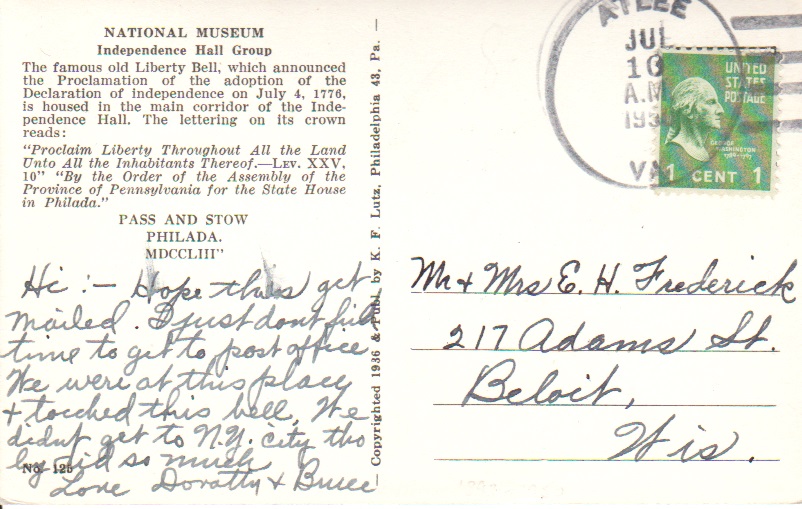 NATIONAL MUSEUM
Independence Hall Group
The famous old Liberty Bell, which announced
the Proclamation of the adoption of the
Declaration of independence on July 4, 1776,
is housed in the main corridor of the Inde-
pendence Hall. The lettering on its crown
reads:
"Proclaim Liberty Throughout All the Land
Unto All the Inhabitants Thereof.—LEV. XXV,
10" "By the Order of the Assembly of the
Province of Pennsylvania for the State House
in Philada."
PASS AND STOW
PHILADA.
MDCCLIII"
Hi :— Hope this get
mailed. I just dont find
time to get to post office
We were at this place
& touched this bell, We
didnt get to N.Y. city tho
by did so much
Love Dorothy & Bruce
No. 125
Copyrighted 1936 & Publ. by K. F. Lutz, Philadelphia 43, Pa.
ATLEE
JUL
10
A.M
VA
UNITED
STATES
POSTAGE
GEORGE
WASHINGTON
1 CENT 1
Mr & Mrs E. H. Frederick
217 Adams St.
Beloit,
Wis.